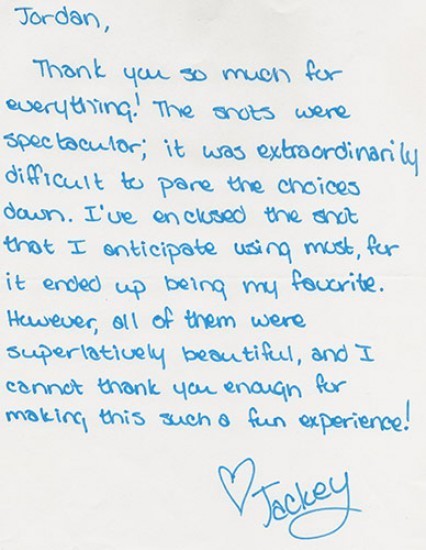 Jordan,
Thank you so much for
everything! The shots were
spectacular; it was extraordinarily
difficult to pare the choices
down. I've enclosed the shot
that I anticipate using most, for
it ended up being my favorite.
However, all of them were
superlatively beautiful, and I
cannot thank you enough for
making this such a fun experience!
♡ Jackey